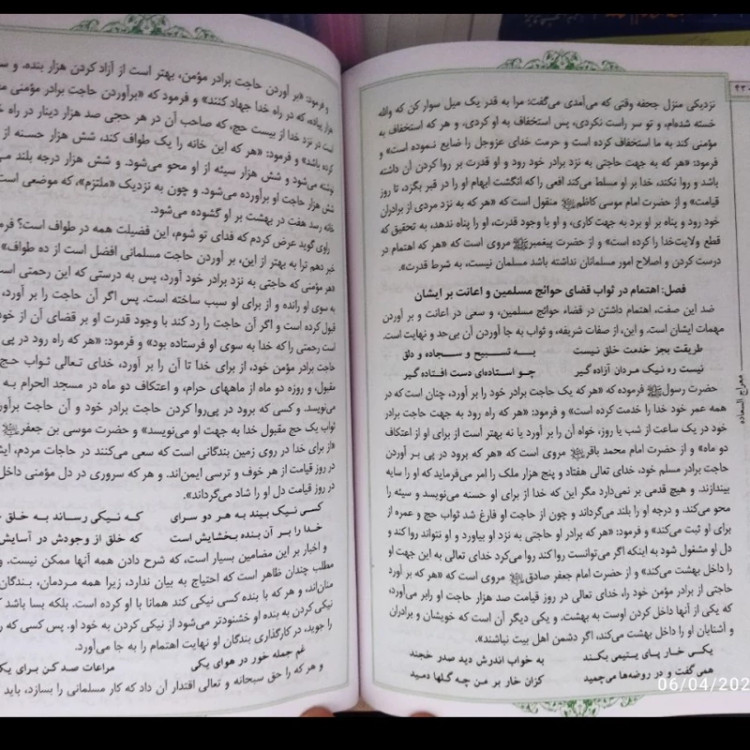 ۴۳۰
معراج السعاده
نزدیکی منزل جحفه وقتی که می‌آمدی می‌گفت: مرا به قدر یک میل سوار کن که والله
خسته شده‌ام، و تو سر راست نکردی، پس استخفاف به او کردی، و هر که استخفاف به
مؤمنی کند به ما استخفاف کرده است و حرمت خدای عزوجل را ضایع نموده است» و
فرمود: «هر که به جهت حاجتی به نزد برادر خود رود و او قدرت بر روا کردن آن داشته
باشد و روا نکند، خدا بر او مسلط می‌کند افعی را که انگشت ابهام او را در قبر بگزد، تا روز
قیامت» و از حضرت امام موسی کاظم منقول است که «هر که به نزد مردی از برادران
خود رود و پناه بر او برد به جهت کاری، و او با وجود قدرت، او را پناه ندهد، به تحقیق که
قطع ولایت خدا را کرده است» و از حضرت پیغمبر مروی است که «هر که اهتمام در
درست کردن و اصلاح امور مسلمانان نداشته باشد مسلمان نیست، به شرط قدرت».
فصل: اهتمام در ثواب قضای حوائج مسلمین و اعانت بر ایشان
ضد این صفت، اهتمام داشتن در قضاء حوائج مسلمین، و سعی در اعانت و بر آوردن
مهمات ایشان است. و این، از صفات شریفه، و ثواب به جا آوردن آن بی‌حد و نهایت است.
طریقت بجز خدمت خلق نیست به تسبیح و سجاده و دلق
نیست ره نیک مردان آزاده گیر چو استاده‌ای دست افتاده گیر
حضرت رسول فرموده که «هر که یک حاجت برادر خود را بر آورد، چنان است که در
همه عمر خود خدا را خدمت کرده است» و فرمود: «هر که راه رود به جهت حاجت برادر
خود در یک ساعت از شب یا روز، خواه آن را بر آورد یا نه بهتر است از برای او از اعتکاف
دو ماه» و از حضرت امام محمد باقر مروی است که «هر که برود در پی بر آوردن
حاجت برادر مسلم خود، خدای تعالی هفتاد و پنج هزار ملک را امر می‌فرماید که او را سایه
بیندازند. و هیچ قدمی بر نمی‌دارد مگر این که خدا از برای او حسنه می‌نویسد و سیئه را
محو می‌کند، و درجه او را بلند می‌گرداند و چون از حاجت او فارغ شد ثواب حج و عمره از
برای او ثبت می‌کند» و فرمود: «هر که برادر او حاجتی به نزد او بیاورد و او نتواند روا کند و
دل او مشغول شود به اینکه اگر می‌توانست روا کند روا می‌کرد خدای تعالی به این جهت او
را داخل بهشت می‌کند» و از حضرت امام جعفر صادق مروی است که «هر که بر آورد
حاجتی از برادر مؤمن خود را، خدای تعالی در روز قیامت صد هزار حاجت او رابر می‌آورد،
که یکی از آنها داخل کردن اوست به بهشت. و یکی دیگر آن است که خویشان و برادران
و آشنایان او را داخل بهشت می‌کند، اگر دشمن اهل بیت نباشند».
یکی خار پای یتیمی بکند به خواب اندرش دید صدر خجند
همی گفت و در روضه‌ها می‌چمید کزان خار بر من چه گلها دمید
و فرمود: «بر آوردن حاجت برادر مؤمن، بهتر است از آزاد کردن هزار بنده. و
هزار پیاده، که در راه خدا جهاد کنند» و فرمود که «برآوردن حاجت برادری مؤمنی
است در نزد خدا از بیست حج، که صاحب آن در هر حجی صد هزار دینار در راه
کرده باشد» و فرمود: «هر که این خانه را یک طواف کند، شش هزار حسنه از
نوشته می‌شود و شش هزار سیئه از او محو می‌شود. و شش هزار درجه بلند
شش هزار حاجت او برآورده می‌شود. و چون به نزدیک «ملتزم»، که موضعی است
خانه رسد هفت در بهشت بر او گشوده می‌شود.
راوی گوید عرض کردم که فدای تو شوم، این فضیلت همه در طواف است؟
خبر دهم ترا به بهتر از این، بر آوردن حاجت مسلمانی افضل است از ده طواف»
«هر مؤمنی که حاجتی به نزد برادر خود آورد، پس به درستی که این رحمتی است
به سوی او رانده و از برای او سبب ساخته است. پس اگر آن حاجت را بر آورد،
قبول کرده است و اگر آن حاجت را رد کند با وجود قدرت او بر قضای آن از خود
رحمتی را که خدا به سوی او فرستاده بود» و فرمود: «هر که راه رود در پی
حاجت برادر مؤمن خود، از برای خدا تا آن را بر آورد، خدای تعالی ثواب حج
مقبول، و روزه دو ماه از ماههای حرام، و اعتکاف دو ماه در مسجد الحرام به
می‌نویسد. و کسی که برود در پی‌روا کردن حاجت برادر خود و آن حاجت
ثواب یک حج مقبول خدا به جهت او می‌نویسد» و حضرت موسی بن جعفر
«از برای خدا در روی زمین بندگانی است که سعی می‌کنند در حاجات مردم،
در روز قیامت از هر خوف و ترسی ایمن‌اند. و هر که سروری در دل مؤمنی داخل
در روز قیامت دل او را شاد می‌گرداند».
کسی نیک بیند به هر دو سرای که نیکی رساند به خلق
خدا را بر آن بنده بخشایش است که خلق از وجودش در آسایش
و اخبار بر این مضامین بسیار است، که شرح دادن همه آنها ممکن نیست. و
مطلب چندان ظاهر است که احتیاج به بیان ندارد، زیرا همه مردمان، بندگان
منان‌اند، و هر که با بنده کسی نیکی کند همانا با او کرده است. بلکه بسا باشد
نیکی کردن به بنده او خشنودتر می‌شود از نیکی کردن به خود او. پس کسی که
را جوید، در کارگذاری بندگان او نهایت اهتمام را به جا می‌آورد.
غم جمله خور در هوای یکی مراعات صد کن برای
و هر که را حق سبحانه و تعالی اقتدار آن داد که کار مسلمانی را بسازد، باید
06/04/202